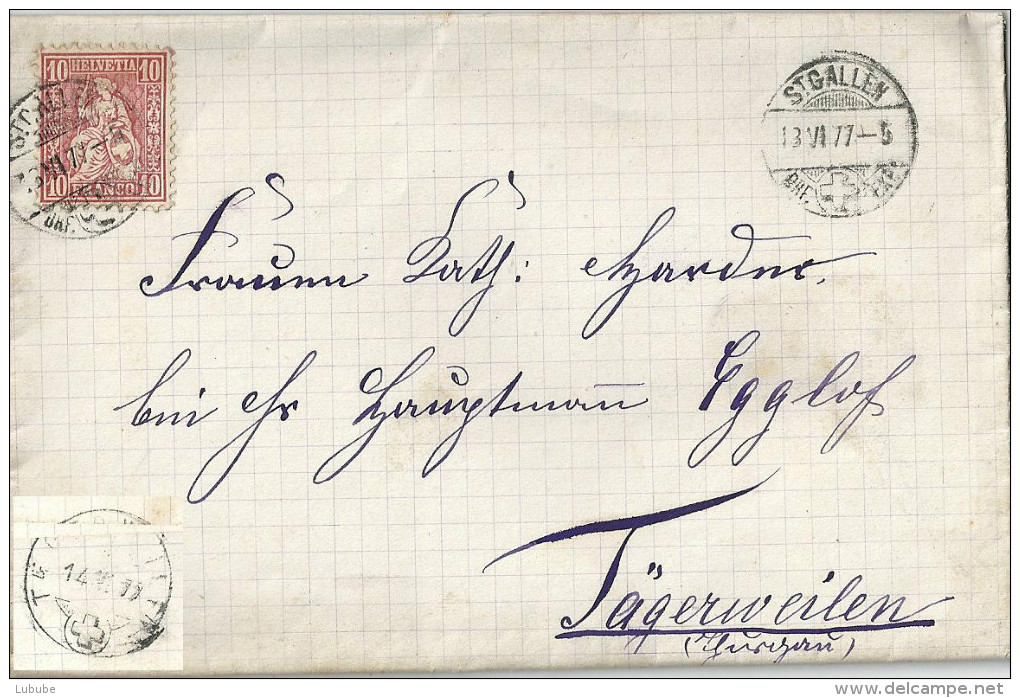 10 HELVETIA 10
10 FRANCO 10
ST. GALLEN
13 VI 77 - 5
BHF. EXP.
ST. GALLEN
13 VI 77 - 5
BHF.
Frauen Kath: Harder,
bei Hr Hauptmañ Egglof
Tägerweilen
(Thurgau)
14 VI 77
Lubube
www.delcampe.net